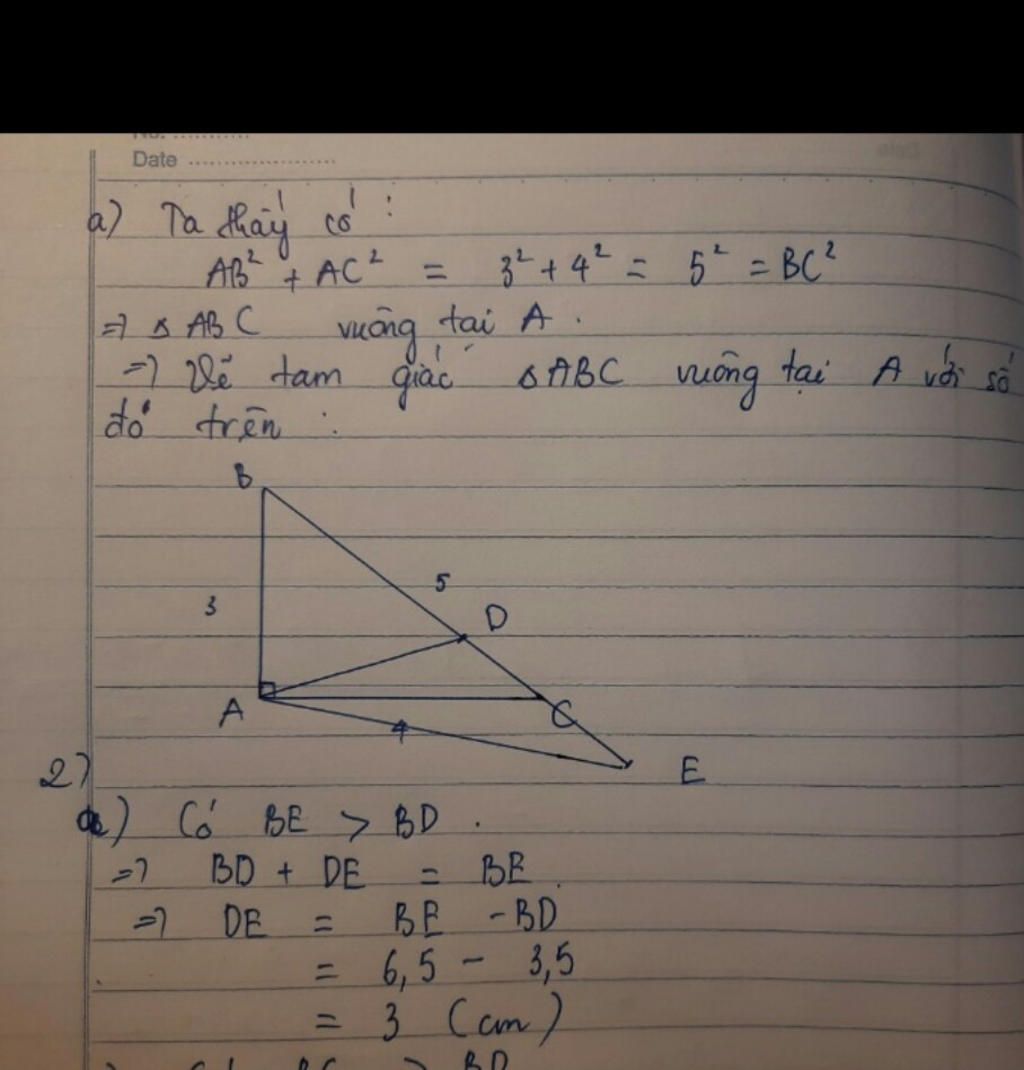 Date
a) Ta thấy có :
AB² + AC² = 3² + 4² = 5² = BC²
=> △ ABC vuông tại A .
=> Vẽ tam giác △ABC vuông tại A với số
đo trên :
B
5
3
D
A
C
4
E
2)
a) Có BE > BD .
=> BD + DE = BE .
=> DE = BE - BD
= 6,5 - 3,5
= 3 (cm)
BC > BD